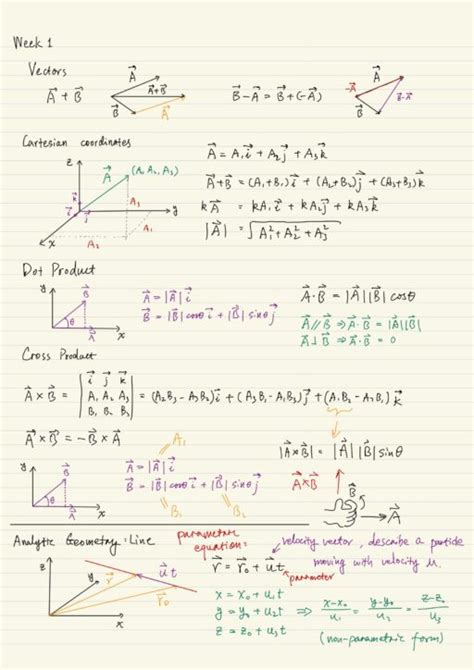 Week 1
Vectors
A⃗ + B⃗
A⃗
A⃗+B⃗
B⃗
A⃗
B⃗ - A⃗ = B⃗ + (-A⃗)
-A⃗
A⃗
B⃗
B⃗-A⃗
Cartesian coordinates
z
A⃗
(A₁ A₂, A₃)
k⃗
i⃗
j⃗
y
x
A₃
A₁
A₂
A⃗ = A₁i⃗ + A₂j⃗ + A₃k⃗
A⃗+B⃗ = (A₁+B₁)i⃗ + (A₂+B₂)j⃗ + (A₃+B₃)k⃗
kA⃗ = kA₁i⃗ + kA₂j⃗ + kA₃k⃗
|A⃗| = √(A₁² + A₂² + A₃²)
Dot Product
y
B⃗
θ
A⃗
x
A⃗ = |A⃗| i⃗
B⃗ = |B⃗| cosθ i⃗ + |B⃗| sinθ j⃗
A⃗·B⃗ = |A⃗||B⃗| cosθ
A⃗∥B⃗ ⇒ A⃗·B⃗ = |A⃗||B⃗|
A⃗⊥B⃗ ⇒ A⃗·B⃗ = 0
Cross Product
A⃗ × B⃗ = | i⃗ j⃗ k⃗ |
| A₁ A₂ A₃ | = (A₂B₃ - A₃B₂)i⃗ + (A₃B₁ - A₁B₃)j⃗ + (A₁B₂ - A₂B₁)k⃗
| B₁ B₂ B₃ |
A⃗ × B⃗ = -B⃗ × A⃗
A₁
|A⃗×B⃗| = |A⃗||B⃗| sinθ
y
B⃗
θ
A⃗
x
A⃗ = |A⃗| i⃗
B⃗ = |B⃗| cosθ i⃗ + |B⃗| sinθ j⃗
B₁
B₂
A⃗×B⃗
B⃗
A⃗
Analytic Geometry: Line
parametric equation:
velocity vector, describe a particle
moving with velocity u.
r⃗ = r⃗₀ + u⃗t
parameter
z
y
r⃗
u⃗t
r⃗₀
x
x = x₀ + u₁t
y = y₀ + u₂t ⇒ (x-x₀)/u₁ = (y-y₀)/u₂ = (z-z₀)/u₃
z = z₀ + u₃t
(non-parametric form)